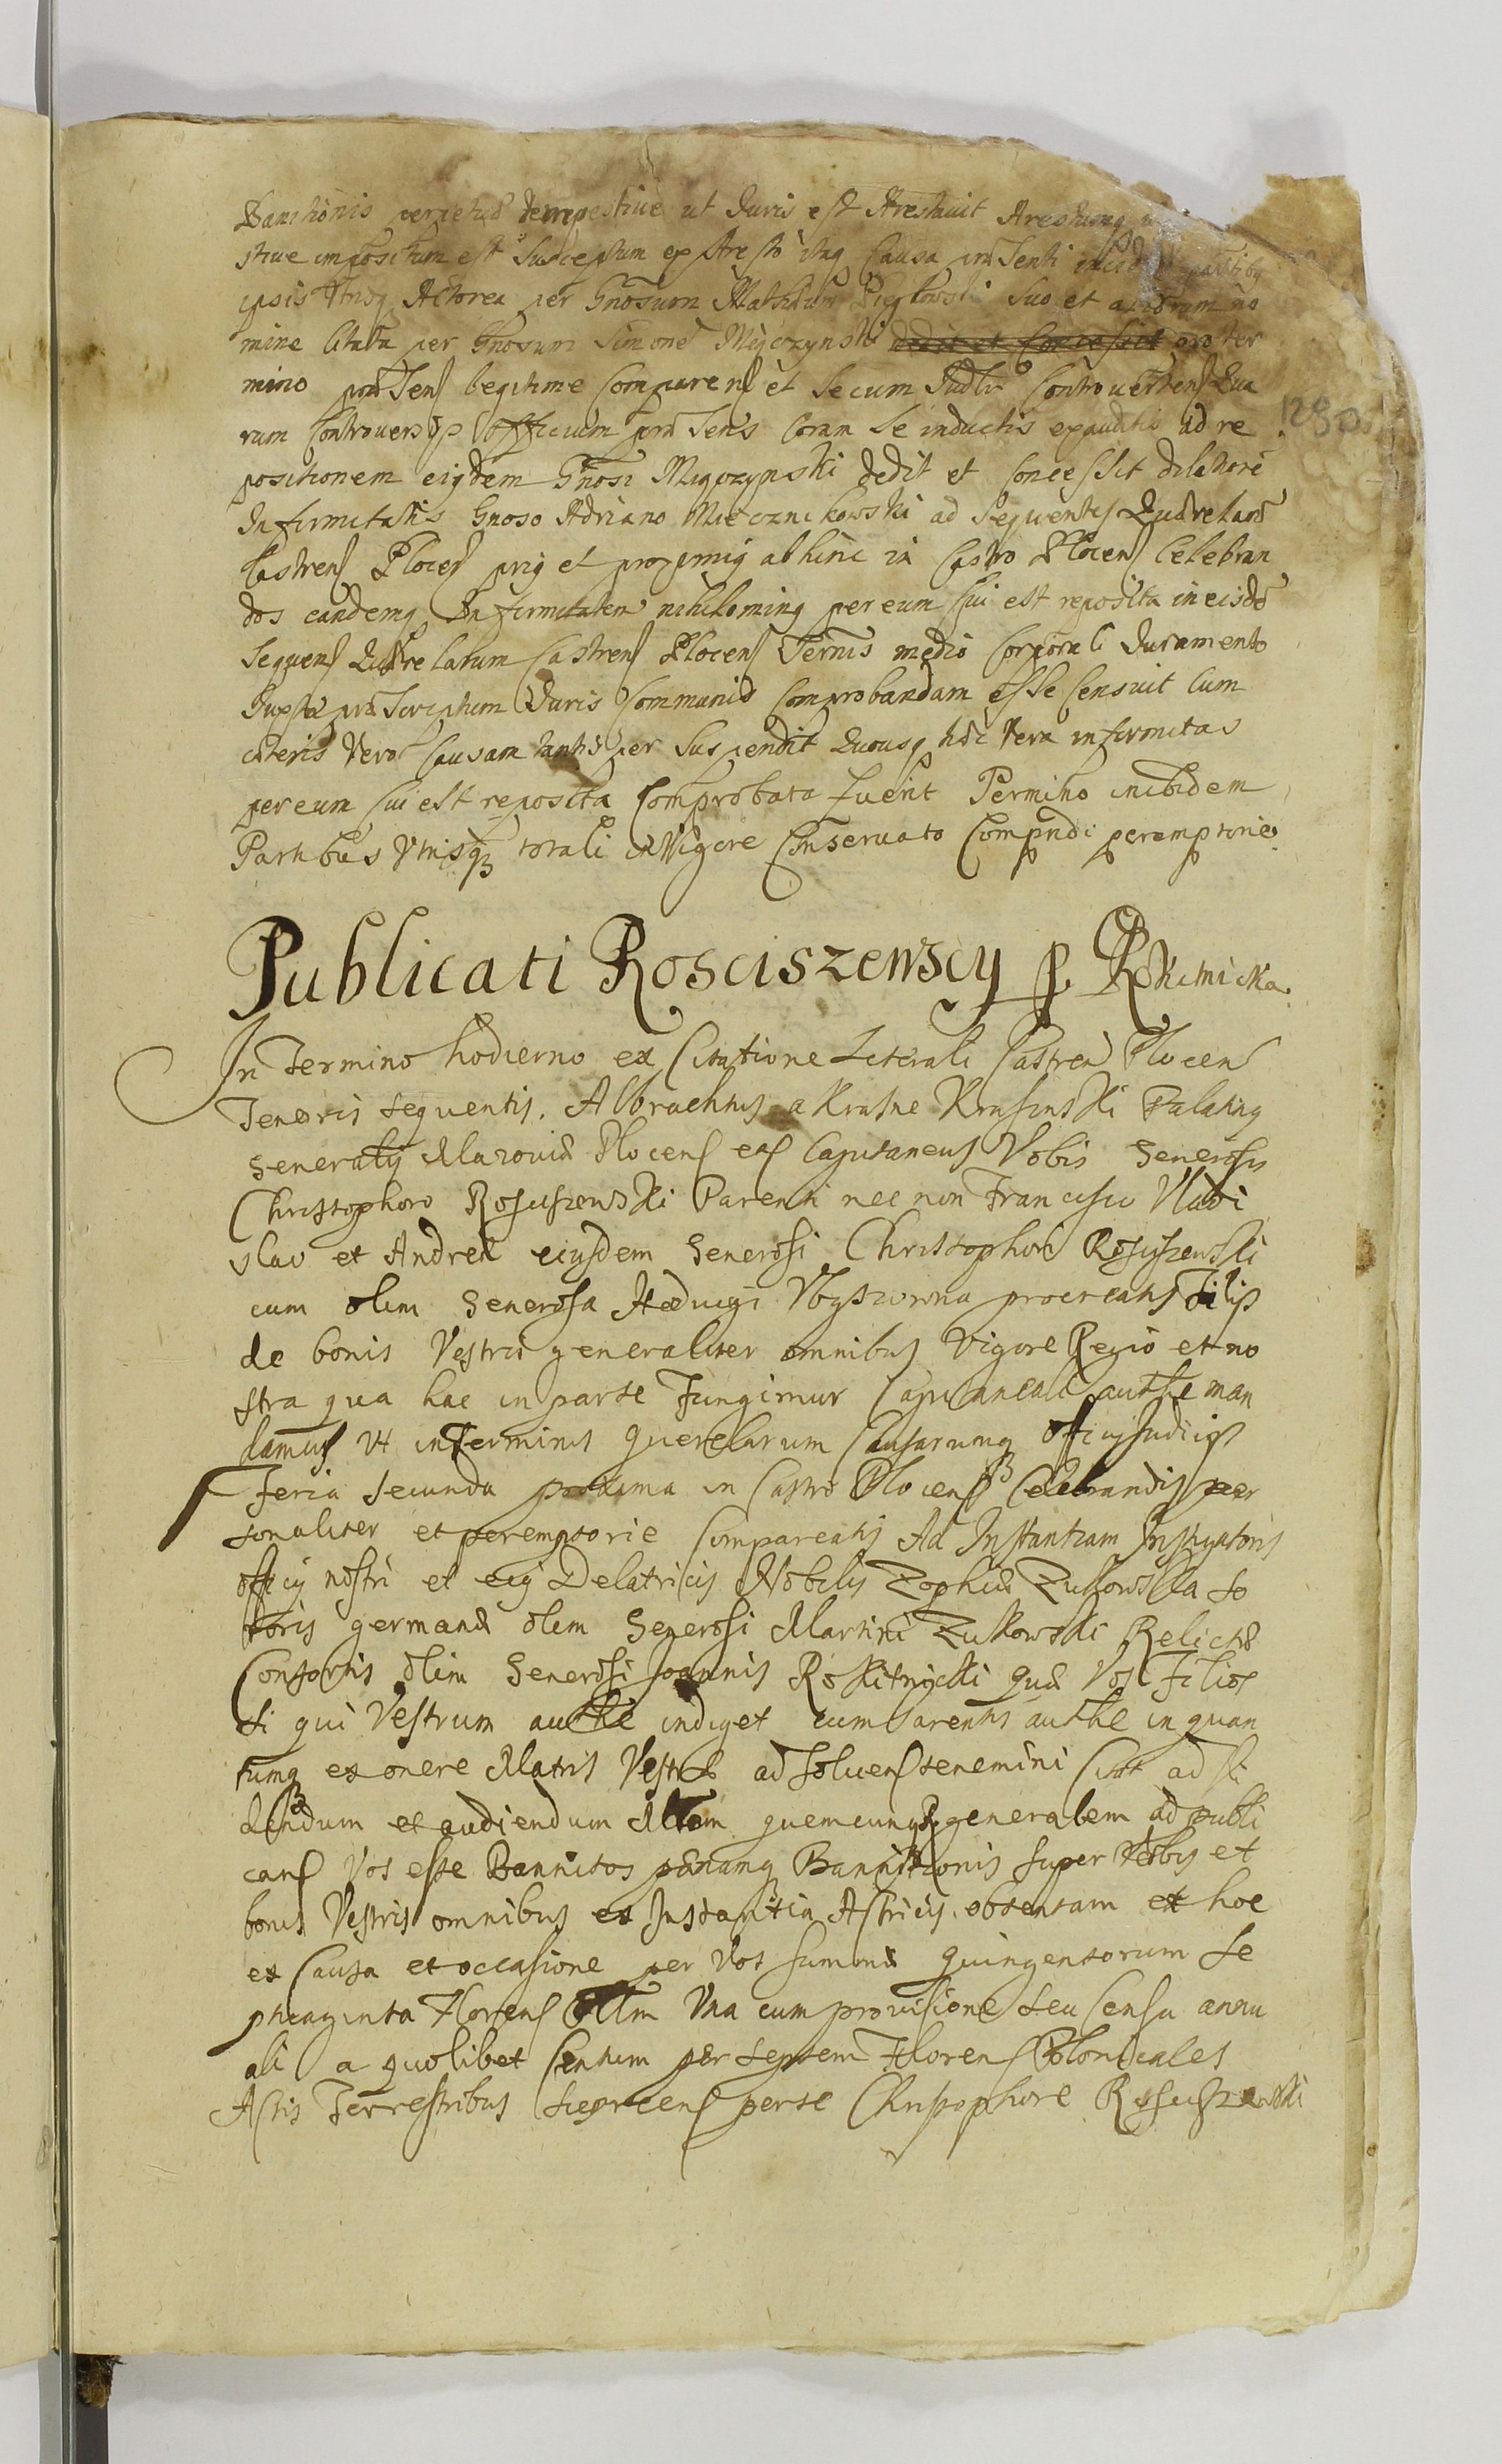 Bannitionis perpetuæ tempestive ut Iuris est Arestavit Arestumq
stive impositum est Susceptum ex Aresto itaq Causa præsenti partibq
ipsis Utrisq Actorea per Gnosum Mathiam suo et aliorum no
mine Citata per Gnosum Simone Mięczynski dedit et Concessit pro ter
mino præsenſ legitime Comparenſ et Secum Iudlr Controvertenſ Qua
rum Controversijs Officium præsens Coram Se inductis exauditis ad re
1280
positionem eiqdem Gnosi Mięczynski dedit et concessit dilaõne
Infirmitatis Gnoso Adriano Miecznikowski ad Sequentes Quærelarũ
Castrenſ Plocenſ prig et proximiq abhinc in Castro Plocenſ Celebran
dos eandemq Infirmitatem nihilominq per eum Cui est reposita in eisdẽ
Sequenſ Quærelarum Castrenſ Plocenſ Termis medio Corporali Iuramento
Iuxta præscriptum Iuris Communis Comprobandam esse Censuit Cum
cæteris Vero Causam tantisper Suspendit Quousq hæc Vera infirmitas
per eum Cui est reposita Comprobata fuerit Termino inibidem
Partibus Vtrisqꝫ totali in Vigore Conservato Compndi peremptorie.
Publicati Rosciszewscy p. Rokitnicka.
In Termino hodierno ex Citatione Literali Castren Plocenſ
Tenoris sequentis. Albrachtus a Krasne Krasinski Palatinq
Generalis Mazoviæ Plocenſ etc Capitaneus Vobis Generosis
Christophoro Rosciszewski Parenti nec non Francisco Vladi
slao et Andreæ eiusdem Generosi Christophori Rosciszewski
cum olim Generosa Hedvigi Vbyszowna procreatis Filijs
de bonis Vestris generaliter omnibus Vigore Regio et no
stra qua hac in parte Fungimur Capitaneali authe man
damus Vt in Terminis Querelarum Causarumq Officij Iudicijs
Feria Secunda proxima in Castro Plocenſ Celebrandis per
sonaliter et peremptorie Compareatis Ad Instantiam Instigatoris
officij nostri et eiq Delatricis Nobilis Zophiæ Zukowska So
roris germanæ olim Generosi Martini Zukowski Relictæ
Consortis olim Generosi Joannis Rokitnicki quæ Vos Filios
si qui Vestrum authe indiget cum Parentis authe in quan
tumq ex onere Matris Vestræ ad solvenſ tenemini Citat ad vi
dendum et audiendum quemcunqꝫ generalem ad publi
canſ Vos esse Bannitos pænamq Bannitionis super Vobis et
bonis Vestris omnibus ex Instantia Actricis obtentam ex hoc
ex Causa et occasione per Vos summæ quingentorum Se
ptuaginta Florenſ una cum provisione seu Censu annu
ali a quolibet Centum per Septem Florenſ Polonicales
Actis Terrestribus Sieprcenſ per te Christophore Rosciszewski